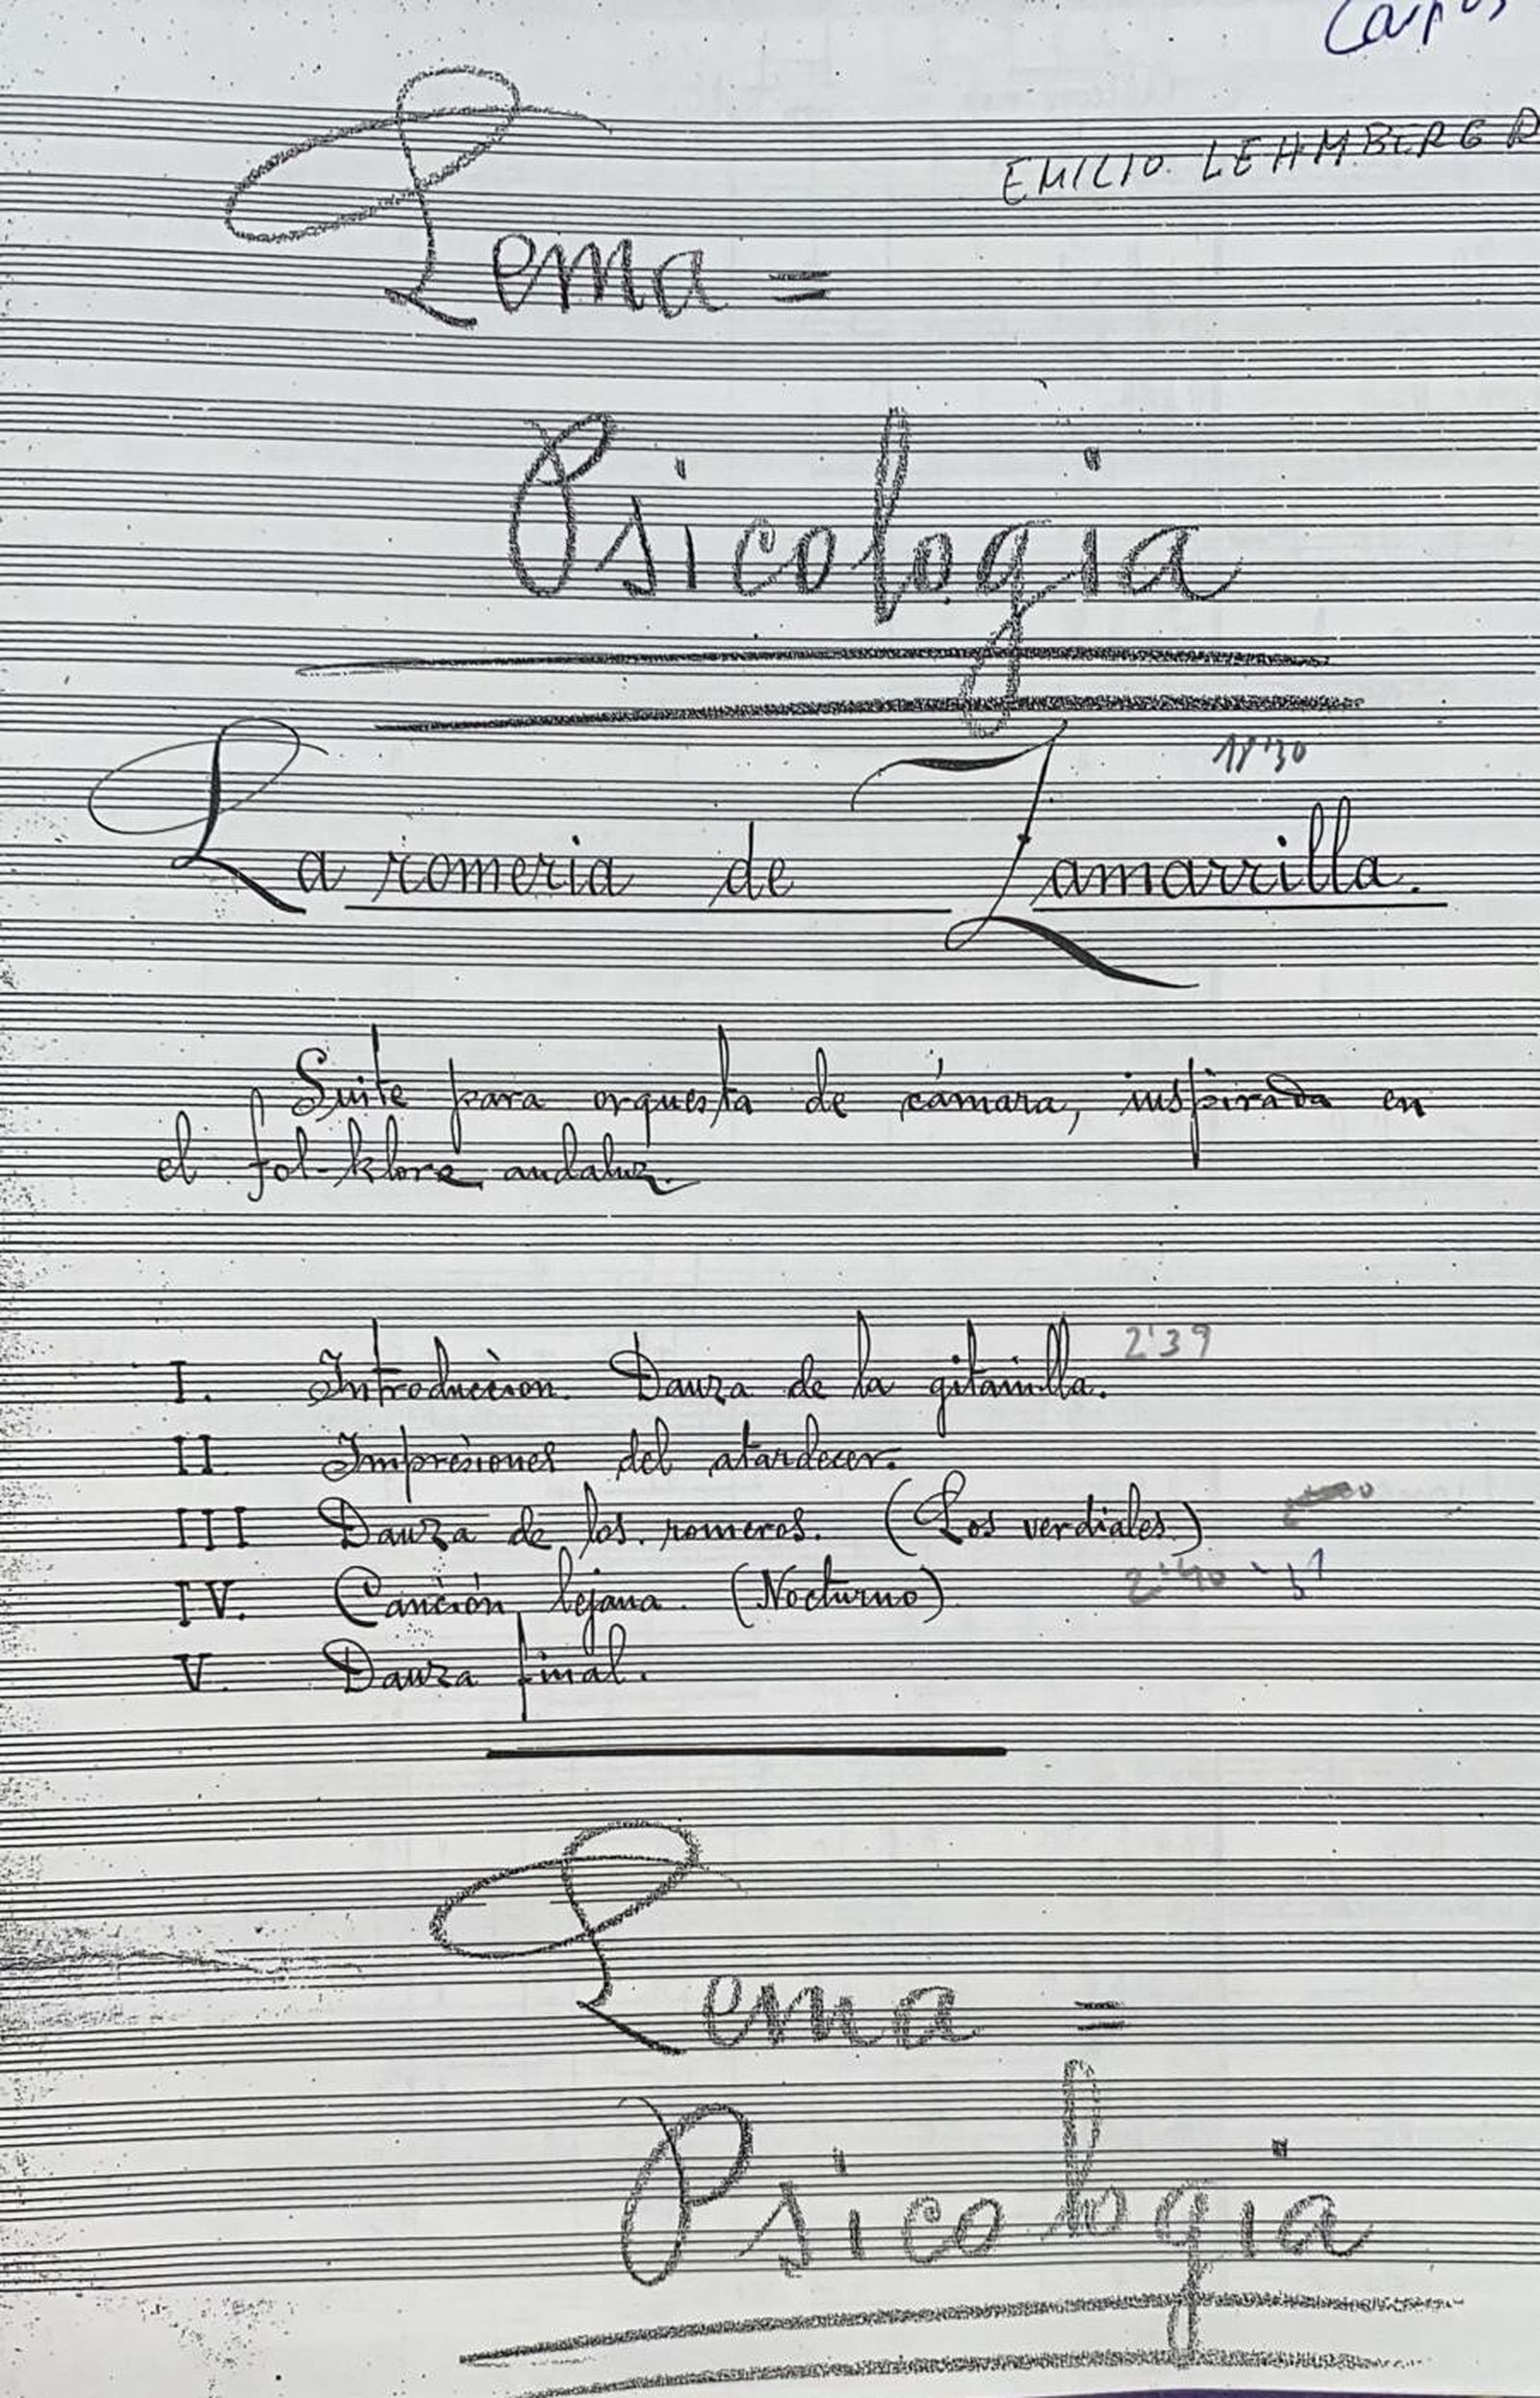 EMILIO LEHMBERG R
Lema =
Psicologia
18'30
La romeria de Zamarrilla.
Suite para orquesta de cámara, inspirada en
el fol-klore andaluz.
I. Introducción. Danza de la gitanilla. 2'39
II Impresiones del atardecer.
III Danza de los romeros. (Los verdiales)
IV. Canción lejana. (Nocturno) 2'40
V. Danza final.
Lema =
Psicologia